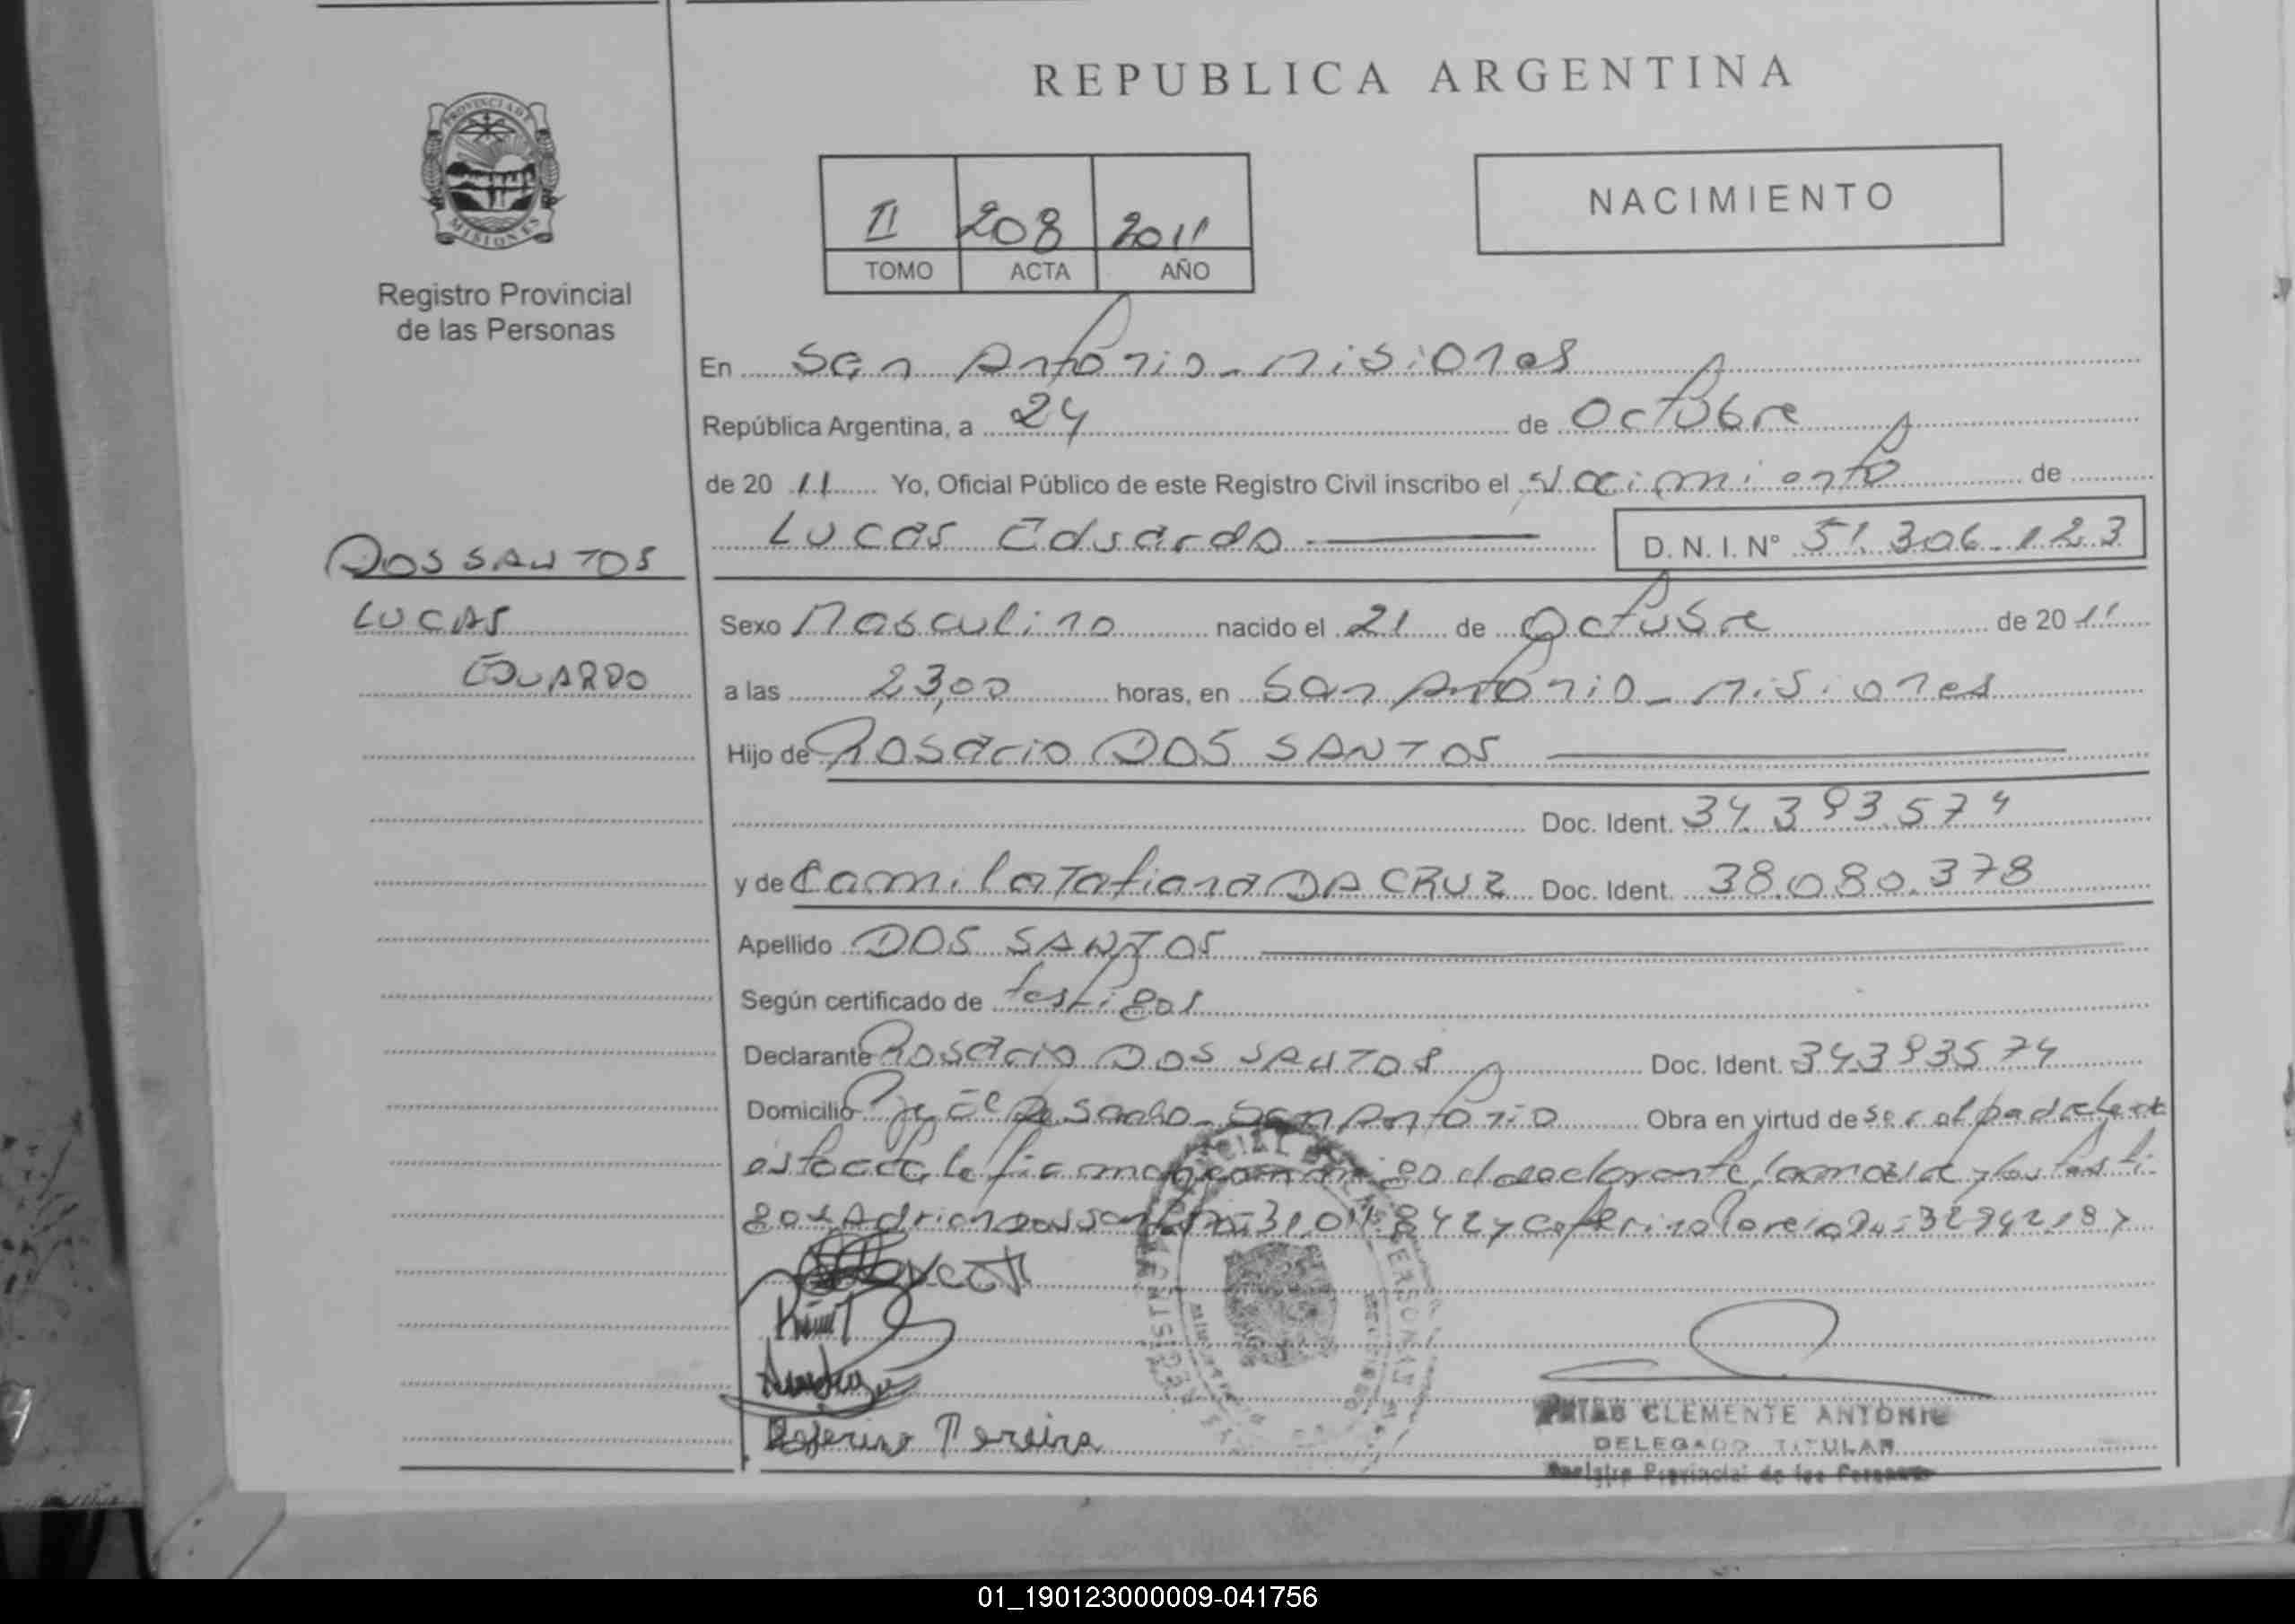 REPUBLICA ARGENTINA
PROVINCIA DE
MISIONES
Registro Provincial
de las Personas
II 208 2011
TOMO ACTA AÑO
NACIMIENTO
En San Antonio - Misiones
República Argentina, a 24 de Octubre
de 20 11 Yo, Oficial Público de este Registro Civil inscribo el Nacimiento de
Lucas Eduardo D.N.I. Nº 51.306.123
DOS SANTOS
LUCAS
EDUARDO
Sexo Masculino nacido el 21 de Octubre de 20 11
a las 23,00 horas, en San Antonio - Misiones
Hijo de Rosario DOS SANTOS
Doc. Ident. 34.393.574
y de Camila Tatiana DA CRUZ Doc. Ident. 38.080.378
Apellido DOS SANTOS
Según certificado de testigos
Declarante Rosario DOS SANTOS Doc. Ident. 34.393574
Domicilio San Antonio Obra en virtud de ser el padre
esta acta la firman conmigo el declarante, la madre y los testi
gos Adrian dos santos 31.011.842 y Ceferino Pereira
Ceferino Pereira
CLEMENTE ANTONIO
DELEGADO TITULAR
Registro Provincial de las Personas
01_190123000009-041756